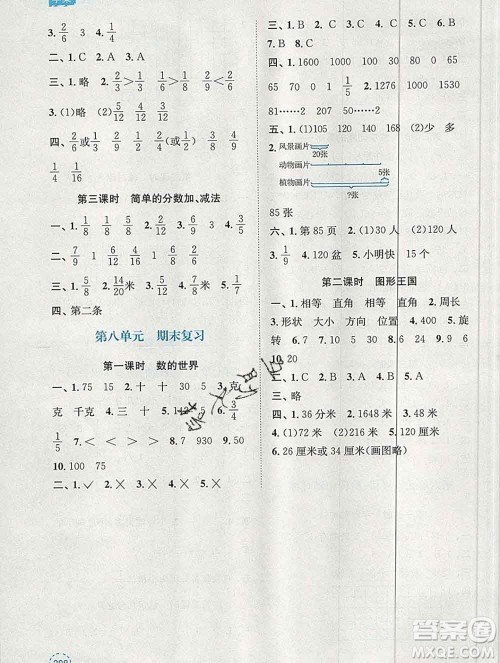 3. 2/6 3 1/4
二、1. C 2. A 3. A 4. C
三、1. 略 2. 2/3 > 1/3 1/8 < 7/8
3. (1)略 5/12 4/12 (2) 5/12 3/12
四、2/6(或1/3) 2/8(或1/4)
1/4 1/4
第三课时 简单的分数加、减法
一、1. 1/8 1/8 2. 4/9 3. 1/5 4. 1/4
二、7/9 1/12 1/6 1 4/9 1/2
三、1. 5/8 3/8 2. 4/7 3. 3/10
四、第二条
第八单元 期末复习
第一课时 数的世界
一、1. 75 15 2. 十 十 30 3. 克
克 千克 4. 二 两 5. 5 6. 3/4
1/5 7. < < > > 8. 7 930 9. 50
10. 100 75
二、1. ✓ 2. ✕ 3. ✕ 4. ✕ 5. ✕
三、1. C 2. C 3. B 4. B 5. C 6. A
7. B 8. A 9. B
四、1. 1600 100 30 3/8 65
65 70 1 1/5 2. 1360 1060 1530
81……2 207……2
五、1. (1)105 120 165 (2)少 多
2. 风景画片 20张
动物画片 5张
植物画片 ?张
85张
六、1. 第85页 2. (1)2人 (2)4人
3. 1/9 4. 120盆 5. 小明快 15个
第二课时 图形王国
一、1. 相等 直角 相等 直角 2. 周长
3. 形状 大小 方向 位置 4. 平移
旋转 5. 16 6. 7 7. 12 8. 40 9. 8 6
10. 20
二、1. C 2. C 3. A 4. B
三、略
四、1. 25厘米 2. 1648米 3. 24厘米
4. (1)72厘米 (2)148厘米 5. 120厘米
6. 26厘米或34厘米(画图略)
答案圈
MXQE.COM